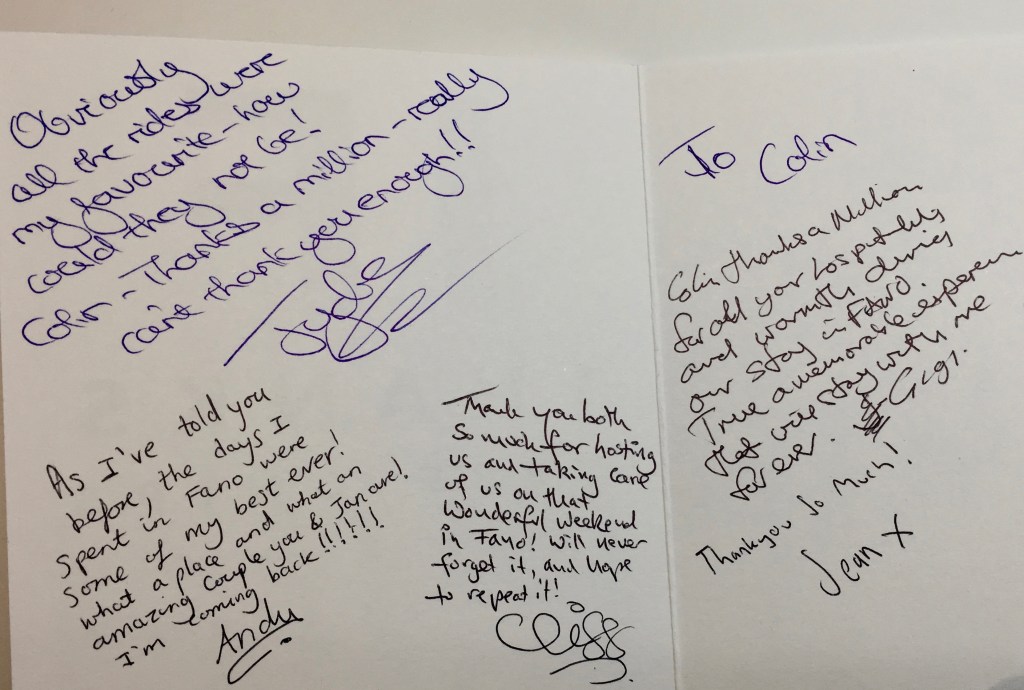 Obviously
all the rides were
my favourite - how
could they not be!
Colin - Thanks a million - really
can't thank you enough!!
As I've told you
before, the days I
spent in Fano were
some of my best ever!
what a place and what an
amazing couple you & Jan are!
I'm coming back!!!!!!
Andy
Thank you both
so much for hosting
us and taking care
of us on that
wonderful weekend
in Fano! Will never
forget it, and hope
to repeat it!
Cliff
To Colin
Colin thanks a Million
for all your hospitality
and warmth during
our stay in Fano.
True a memorable experience
that will stay with me
for ever. Gigi.
Thank you So Much!
Jean x